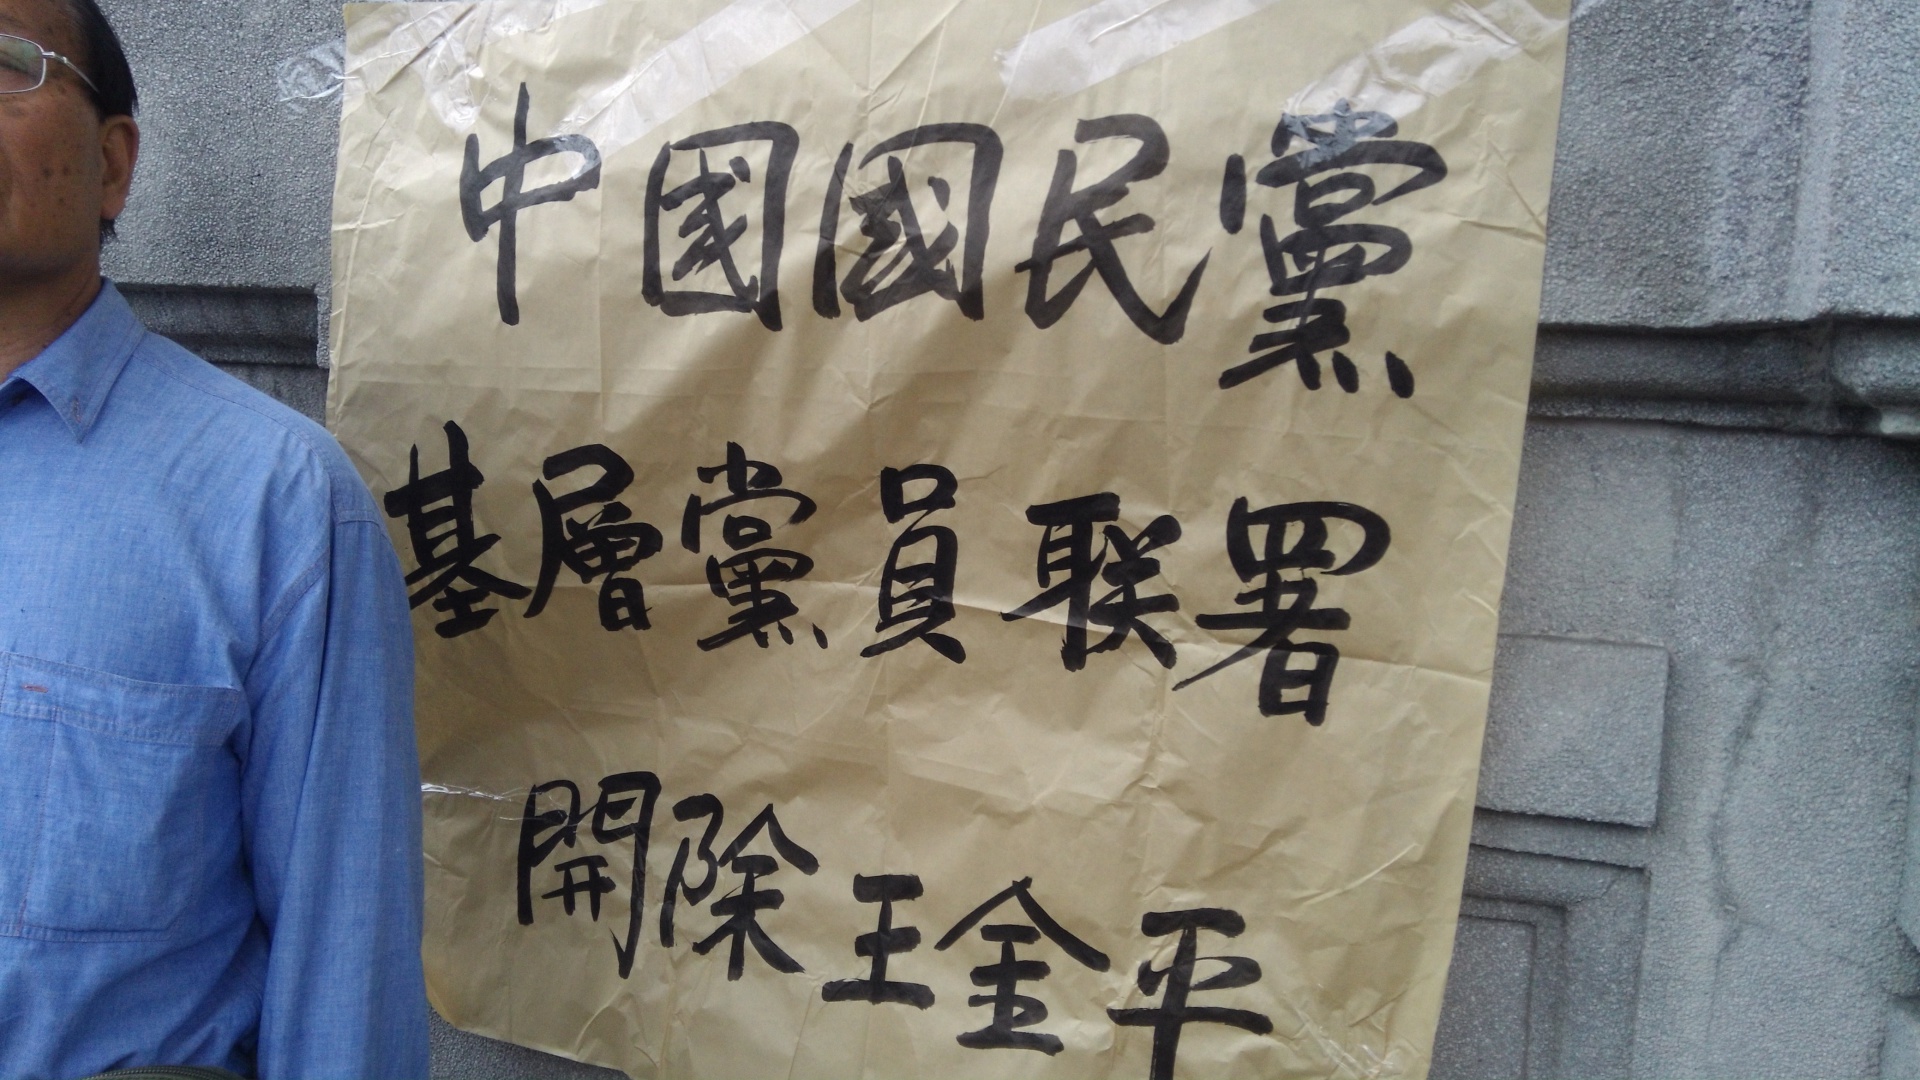 中國國民黨
基層黨員联署
開除王金平